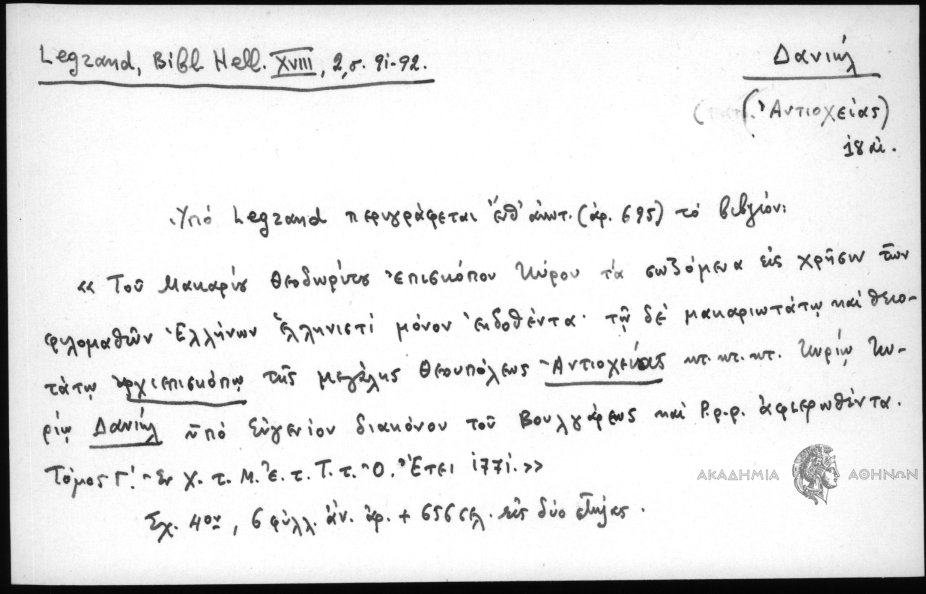 Legrand, Bibl. Hell. XVIII, 2, σ. 91-92.
Δανιὴλ
(πατρ. Ἀντιοχείας)
18 αἰ.
Ὑπὸ Legrand περιγράφεται ἐνθ' ἀνωτ. (ἀρ. 695) τὸ βιβλίον:
« Τοῦ Μακαρίου Θεοδωρίτου ἐπισκόπου Κύρου τὰ σωζόμενα εἰς χρῆσιν τῶν
φιλομαθῶν Ἑλλήνων ἑλληνιστὶ μόνον ἐκδοθέντα· τῷ δὲ μακαριωτάτῳ καὶ θειο-
τάτῳ ἀρχιεπισκόπῳ τῆς μεγάλης Θεουπόλεως Ἀντιοχείας κτ. κτ. κτ. Κυρίῳ Κυ-
ρίῳ Δανιὴλ ὑπὸ Εὐγενίου διακόνου τοῦ Βουλγάρεως καὶ Ρ.ρ.ρ. ἀφιερωθέντα.
Τόμος Γ'. Ἐν Χ. τ. Μ. Ἐ. τ. Τ. τ. Ο. Ἔτει 1771. »
Σχ. 4ον, 6 φύλλ. ἀν. ἀρ. + 656 σελ. εἰς δύο στήλας.
ΑΚΑΔΗΜΙΑ ΑΘΗΝΩΝ